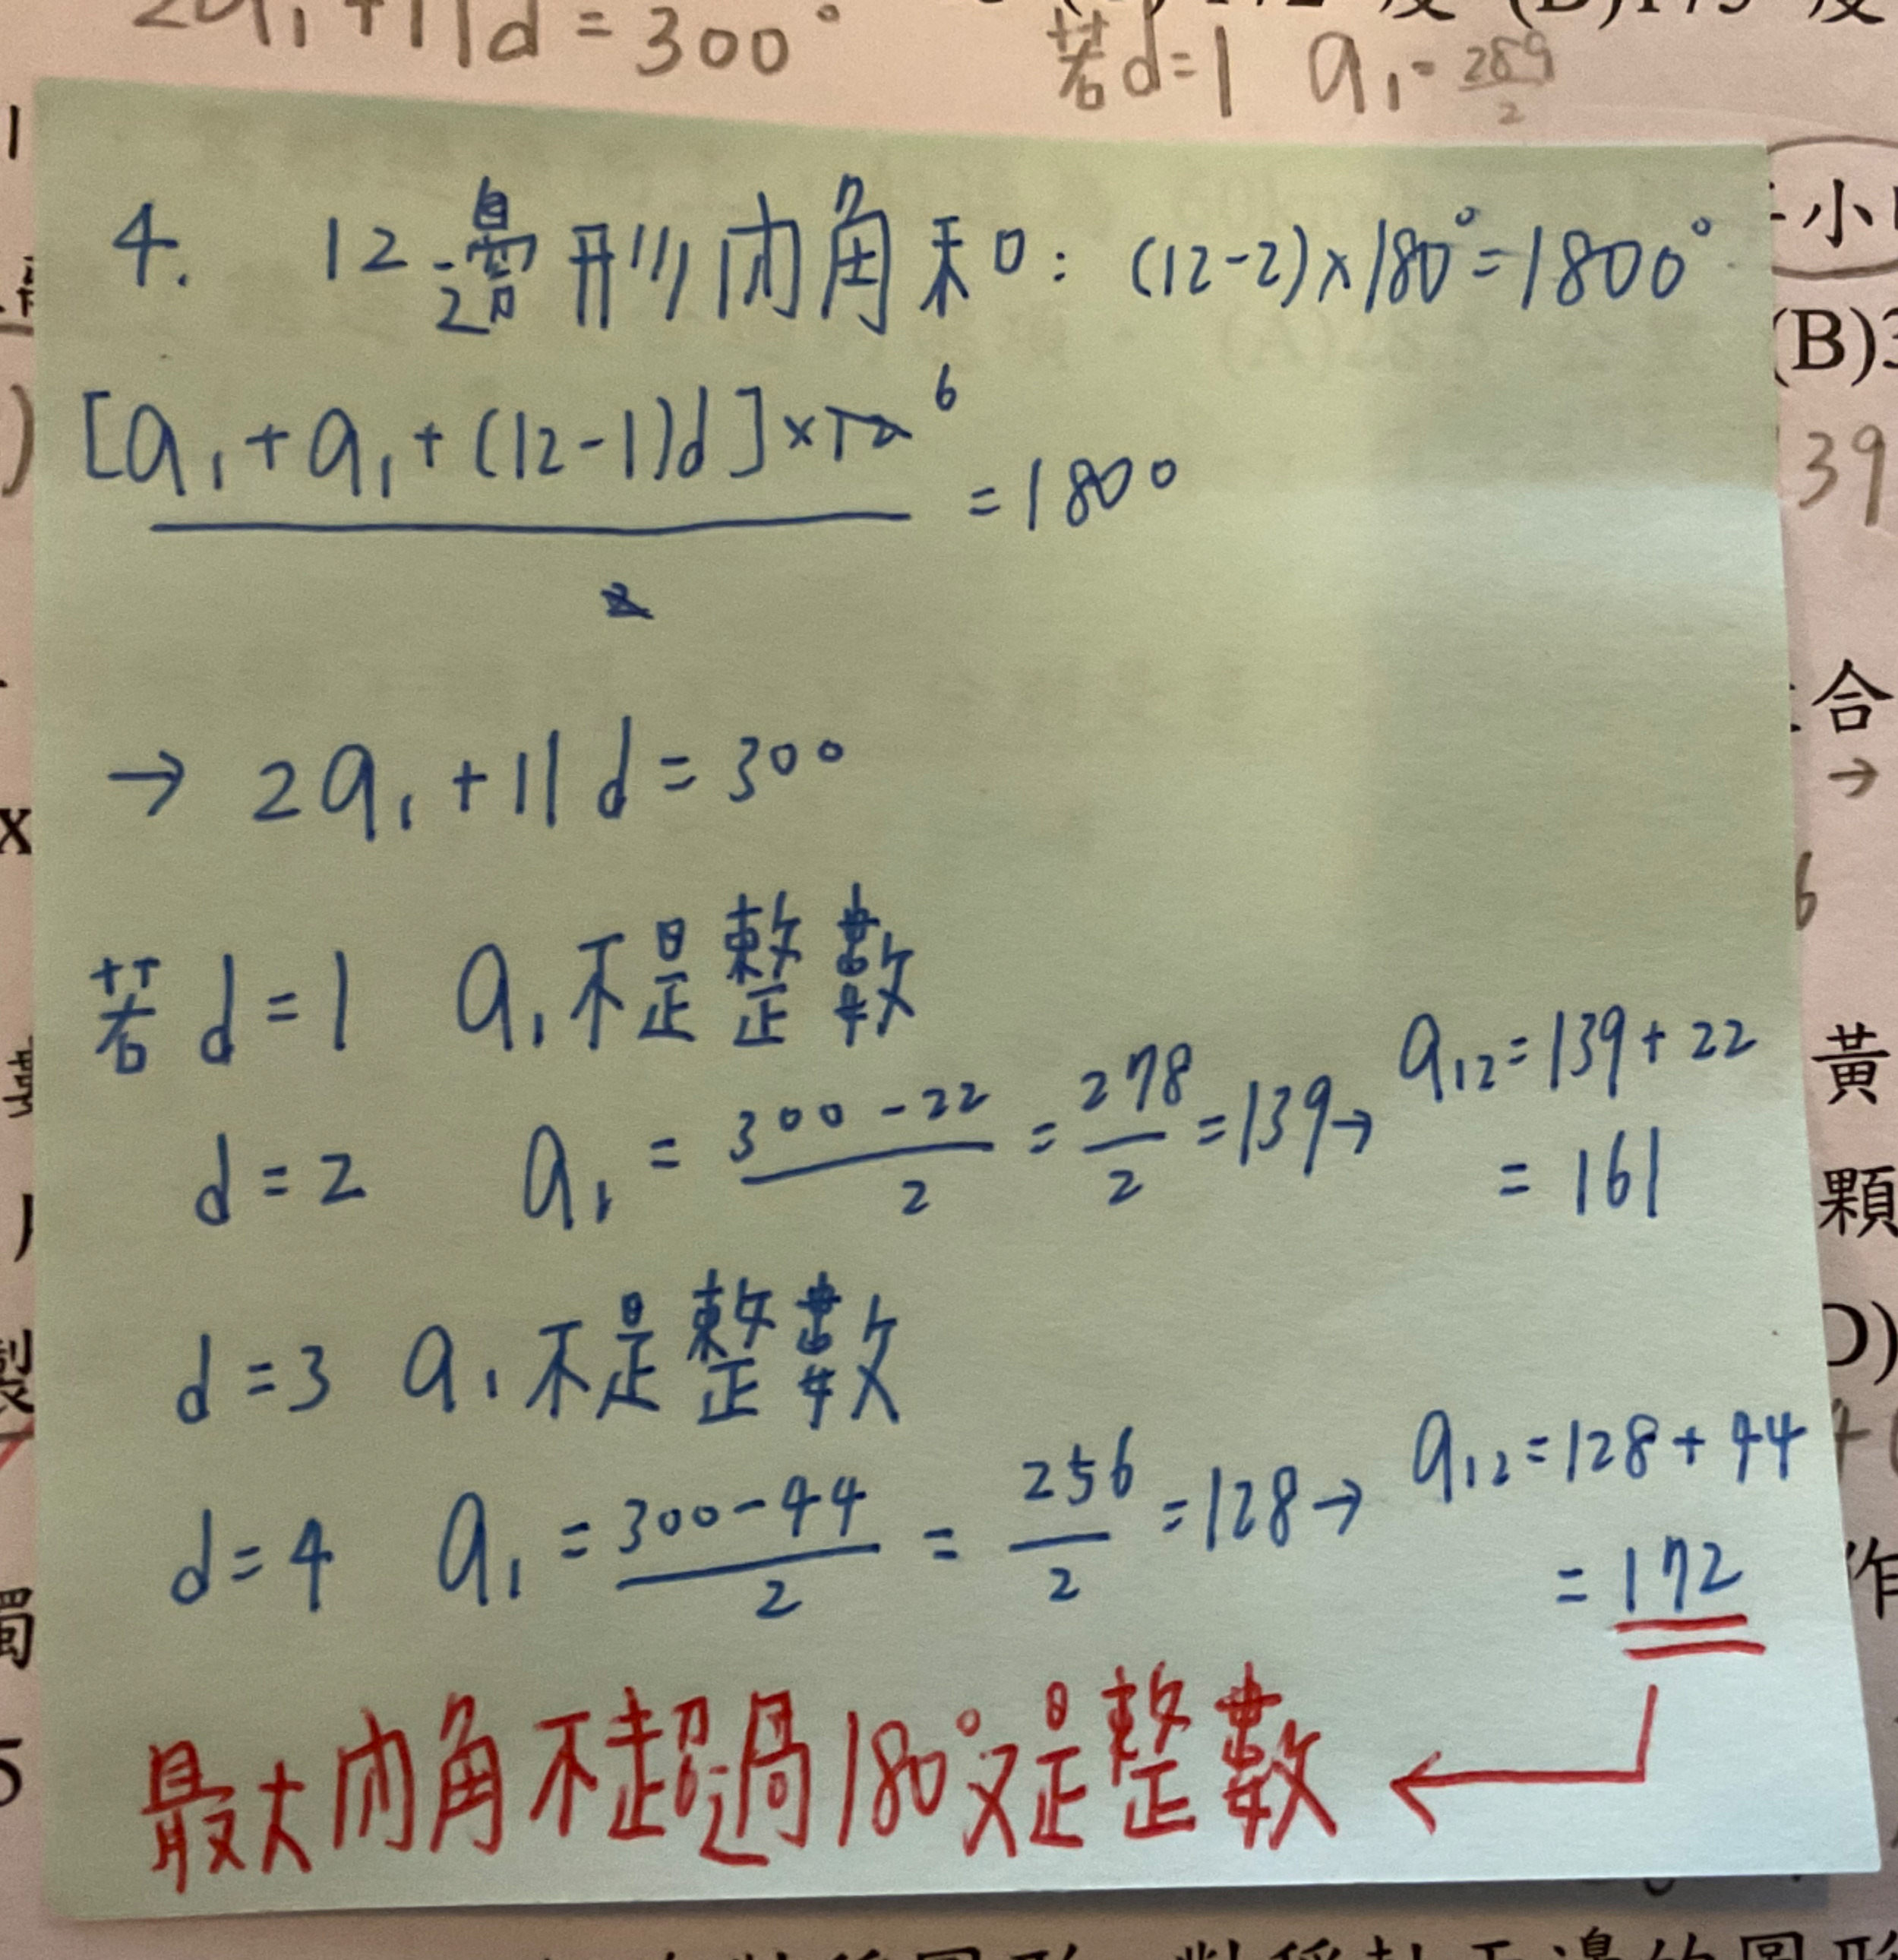 2a₁+11d=300°
若d=1 a₁=289/2
4. 12邊形內角和:(12-2)×180°=1800°
[a₁+a₁+(12-1)d]×12 6
=1800
2
→ 2a₁+11d=300
若 d=1 a₁不是整數
d=2 a₁=(300-22)/2=278/2=139→ a₁₂=139+22
=161
d=3 a₁不是整數
d=4 a₁=(300-44)/2=256/2=128→ a₁₂=128+44
=172
最大內角不超過180°又是整數 ←
小
(B)3
39
合
→
6
黃
顆
D)
作
x
製
5